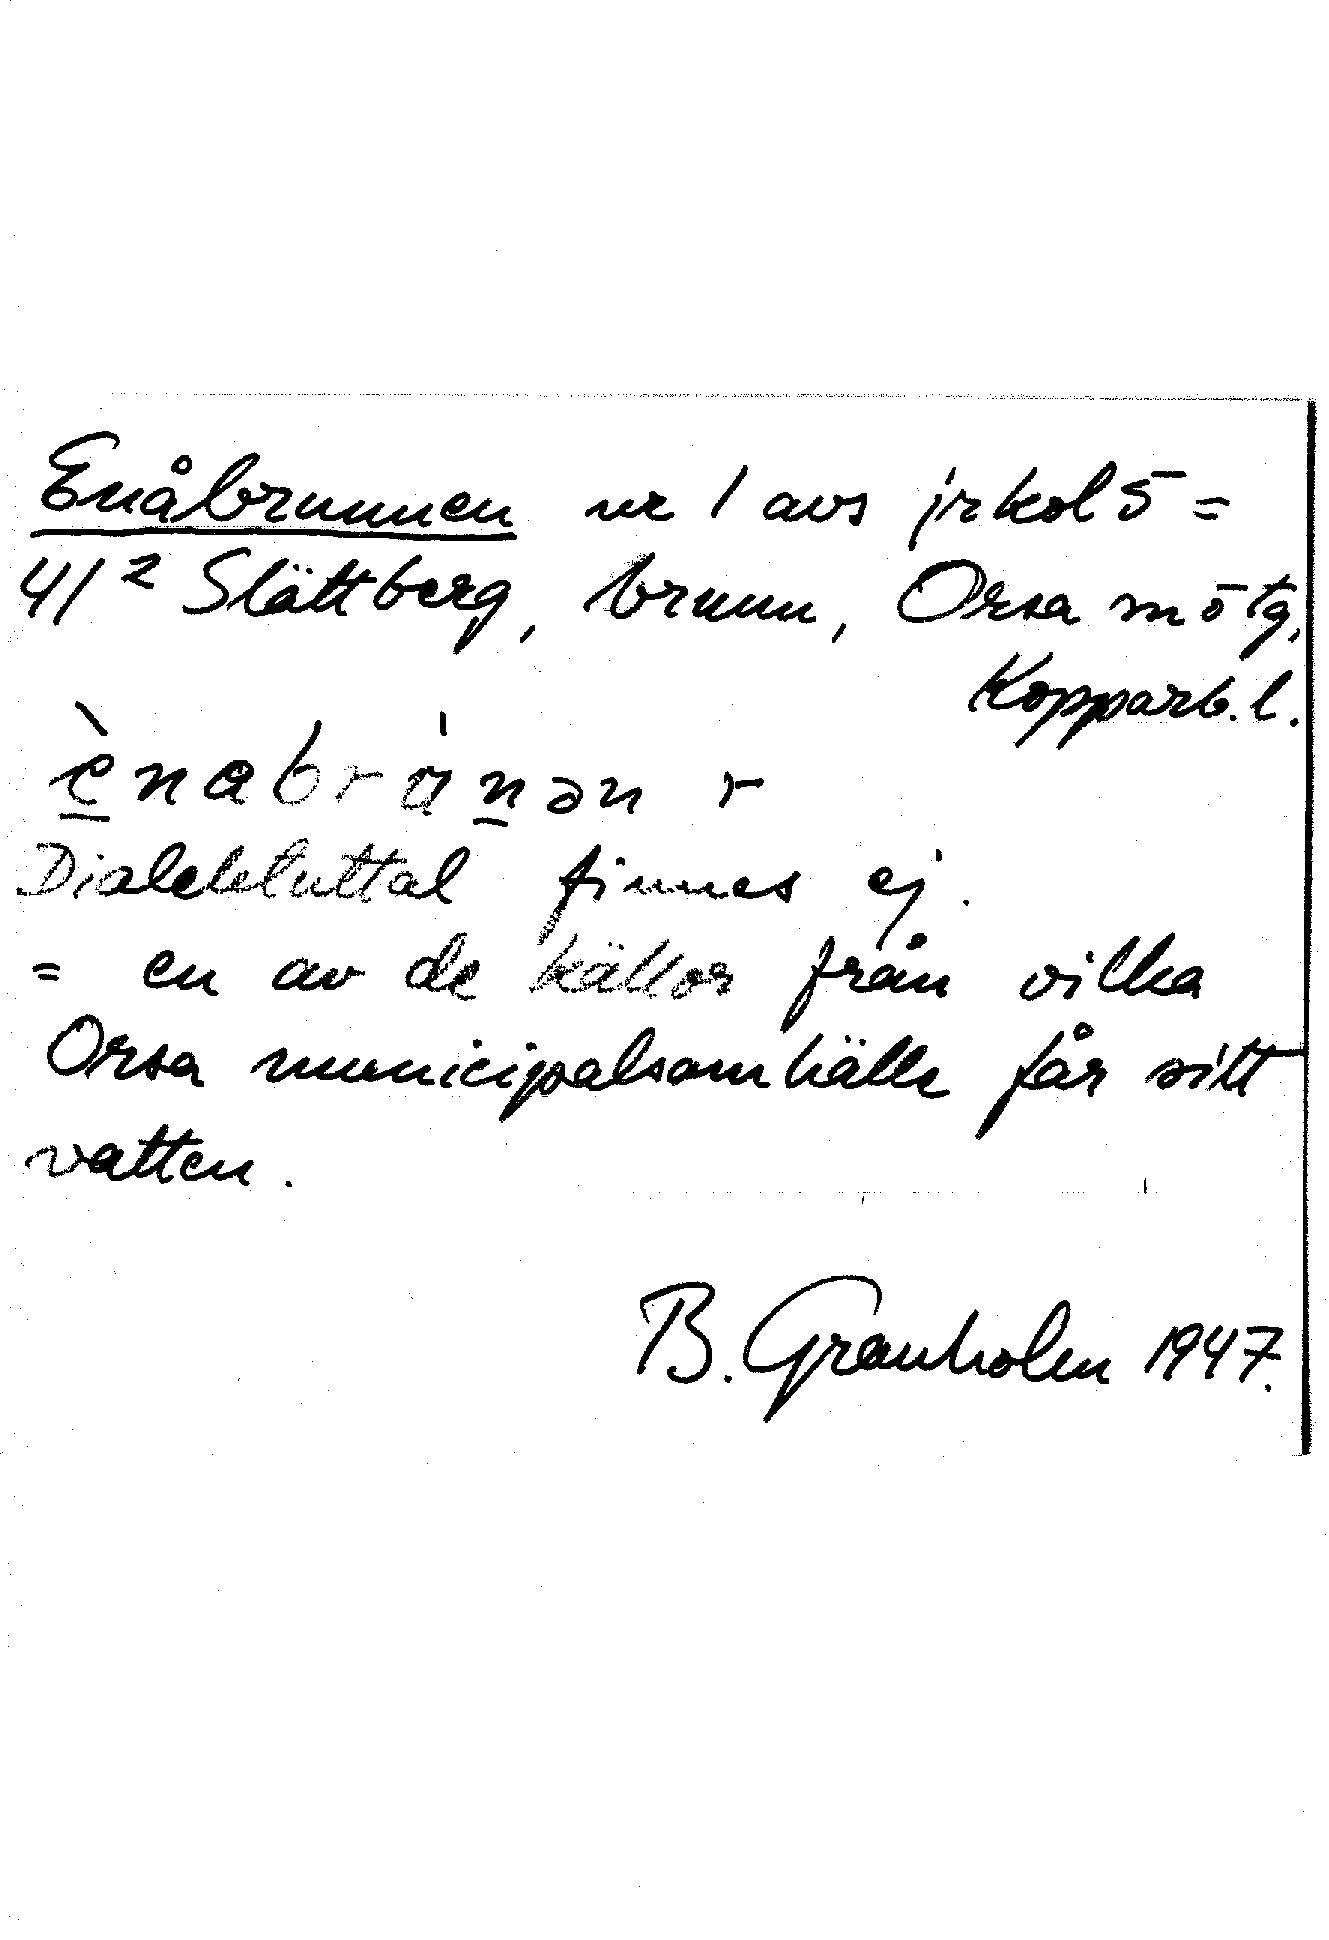 Enåbrunnen nr 1 avs jrkol 5 =
41² Slättberg, brunn, Orsa sn ö tg,
Kopparb. l.
ènabrànən r
Dialektuttal finnes ej.
= en av de källor från vilka
Orsa municipalsamhälle får sitt
vatten.
B. Granholm 1947.